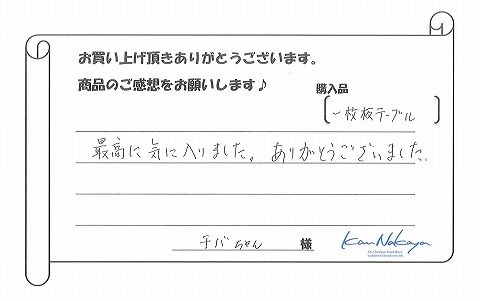 お買い上げ頂きありがとうございます。
商品のご感想をお願いします♪
購入品
一枚板テーブル
最高に気に入りました。ありがとうございました。
チバちゃん 様
Kan Nakaya